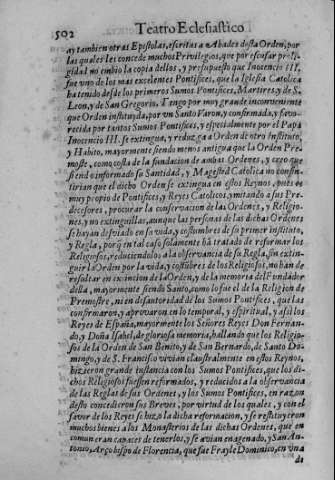 502 Teatro Eclesiastico
ay tambien otras Epistolas, escritas a Abades desta Orden, por
las quales les concede muchos Privilegios, que por escusar proli-
gidad no embio la copia dellos, y presupuesto que Inocencio III,
fue uno de los mas excelentes Pontifices, que la Iglesia Catolica
ha tenido desde los primeros Sumos Pontifices, Martires, y de S.
Leon, y de San Gregorio, Tengo por muy grande inconveniente
que Orden instituyda, por un Santo Varon, y confirmada, y favo-
recida por tantos Sumos Pontifices, y especialmente por el Papa
Inocencio III. se extingua, y reduzga a Orden de otro Instituto,
y Habito, mayormente siendo menos antigua que la Orden Pre-
moste, como costa de la fundacion de ambas Ordenes, y creo que
siendo informado su Santidad, y Magestad Catolica no consen-
tirian que el dicho Orden se extingua en estos Reynos, pues es
muy propio de Pontifices, y Reyes Catolicos, ymitando a sus Pre-
decesores, procurar la conservacion de las Ordenes, y Religio-
nes, y no extinguillas, aunque las personas de las dichas Ordenes
se hayan desviado en su vida, y costumbres de su primer instituto,
y Regla, porq̃ en tal caso solamente hã tratado de reformar los
Religiosos, reduciendolos a la observancia de su Regla, sin extin-
guir la Ordẽ por la vida, y costũbres de los Religiosos, no han de
resultar en extincion de la Orden, y de la memoria del Fundador
della, mayormente siendo Santo, como lo fue el de la Religion de
Premostre, ni en desautoridad de los Sumos Pontifices, que las
confirmaron, y aprovaron en lo temporal, y espiritual, y asi los
Reyes de España, mayormente los Señores Reyes Don Fernan-
do, y Doña Isabel, de gloriosa memoria, hallando que los Religio-
sos de la Orden de San Benito, y de San Bernardo, de Santo Do-
mingo, y de S. Francisco vivian claustralmente en estos Reynos,
hizieron grande instancia con los Sumos Pontifices, que los di-
chos Religiosos fuessen reformados, y reducidos a la observancia
de las Reglas de sus Ordenes, y los Sumos Pontifices, en razon
desto concedieron sus Breves, por virtud de los quales, y con el
favor de los Reyes se hizo la dicha reformacion, y se restituyeron
muchos bienes a los Monasterios de las dichas Ordenes, que en
comun eran capaces de tenerlos, y se avian enagenado, y San An-
tonio, Arçobispo de Florencia, que fue Frayle Dominico, en una